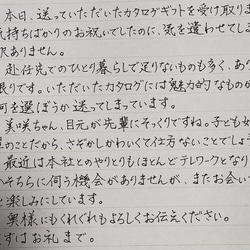 本日、送っていただいたカタログギフトを受け取りま
気持ちばかりのお祝いでしたのに、気を遣わせてしま
訳ありません。
赴任先でのひとり暮らしで足りないものも多く、あり
限りです。いただいたカタログには魅力的なものが
何を選ぼうか迷ってしまっています。
美咲ちゃん、目元が先輩にそっくりですね。子ども好
のことだから、さぞかしかわいくて仕方ないことでしょう
最近は本社とのやりとりもほとんどテレワークとなり
そちらに伺う機会がありませんが、またお会いで
楽しみにしています。
奥様にもくれぐれもよろしくお伝えください。
ずはお礼まで。